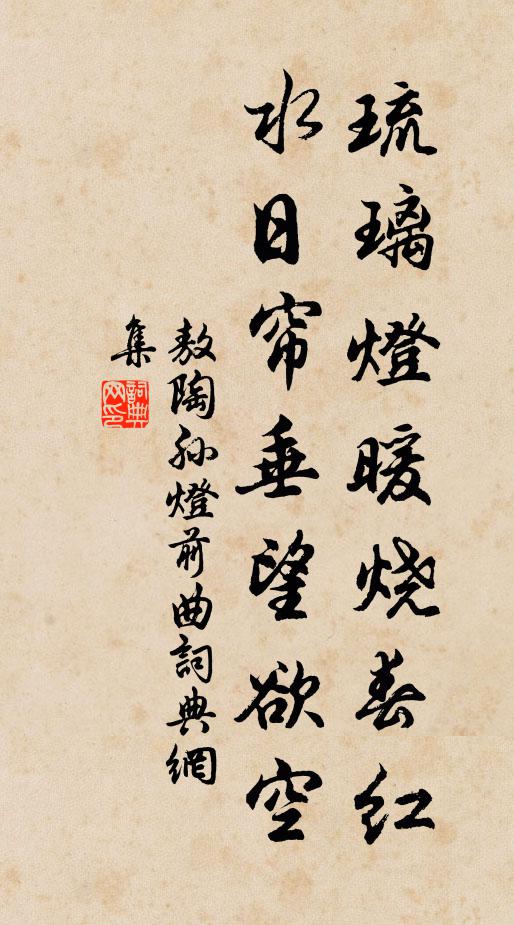 琉璃燈暖烧春红
水日帘垂望欲空
敖陶孙燈前曲詞典網
集
詞典
网印